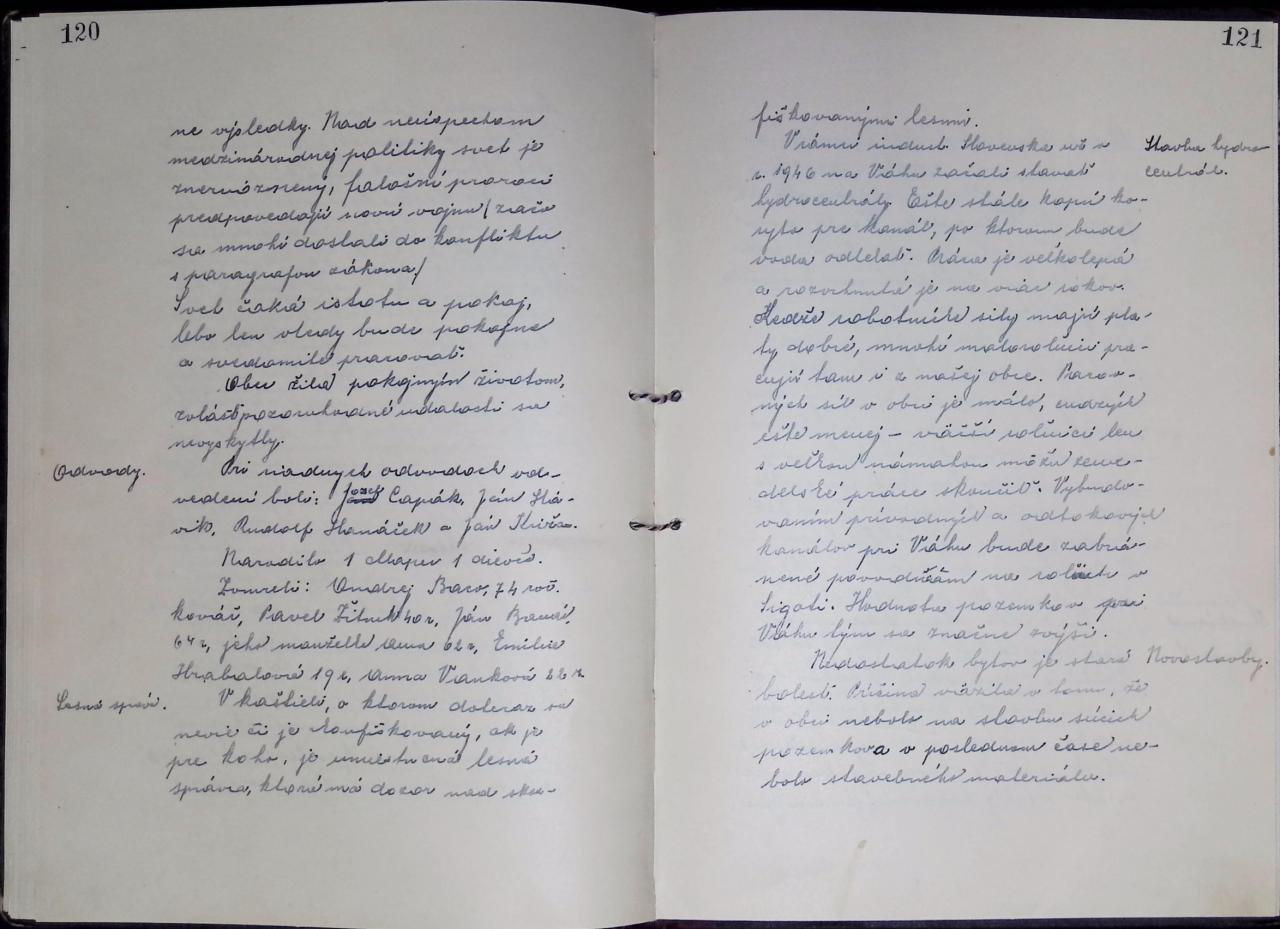 120
ne výsledky. Nad neúspechom
medzinárodnej politiky svet je
znervóznený, falošní proroci
predpovedajú novú vojnu (začo
sa mnohí dostali do konfliktu
s paragrafom zákona)
Svet čaká istotu a pokoj,
lebo len vtedy bude pokojne
a svedomite pracovať.
Obec žila pokojným životom,
zvlášť pozoruhodné udalosti sa
nevyskytly.
Odvody.
Pri riadnych odvodoch od-
vedení boli: Jozef Capák, Ján Slá-
vik, Rudolf Hanáček a Ján Križa.
Narodilo 1 chlapec 1 dievč.
Zomreli: Ondrej Baro, 74 roč.
kováč, Pavel Žitník 40 r, Ján
64 r, jeho manželka Anna 62 r, Emilie
Hrabalová 19 r, Anna Vianková 22 r.
Lesná správa.
V kaštieli, o ktorom doteraz sa
nevie či je konfiškovaný, ak je
pre koho, je umiestnená lesná
správa, ktorá má dozor nad skon-
121
fiškovanými lesmi.
V rámci indust. Slovenska už v
r. 1946 na Váhu začali stavať
hydrocentrály. Ešte stále kopú ko-
ryto pre kanál, po ktorom bude
voda odtekať. Práca je veľkolepá
a rozvrhnutá je na viac rokov.
Stavba hydro
centrál.
Kedže robotnícke sily majú pla-
ty dobré, mnohí maloroľníci pra-
cujú tam i z našej obce. Pracov-
ných síl v obci je málo, cudzých
ešte menej – väčší roľníci len
s veľkou námahou môžu zeme-
delské práce skončiť. Vybudo-
vaním prívodných a odtokových
kanálov pri Váhu bude zabrá-
nené povodňám na roliach v
Sigoti. Hodnota pozemkov pri
Váhu tým sa značne zvýši.
Nedostatok bytov je stará
Novostavby.
bolesť. Príčina väzila v tom, že
v obci nebolo na stavbu súcich
pozemkov a v poslednom čase ne-
bolo stavebného materiálu.